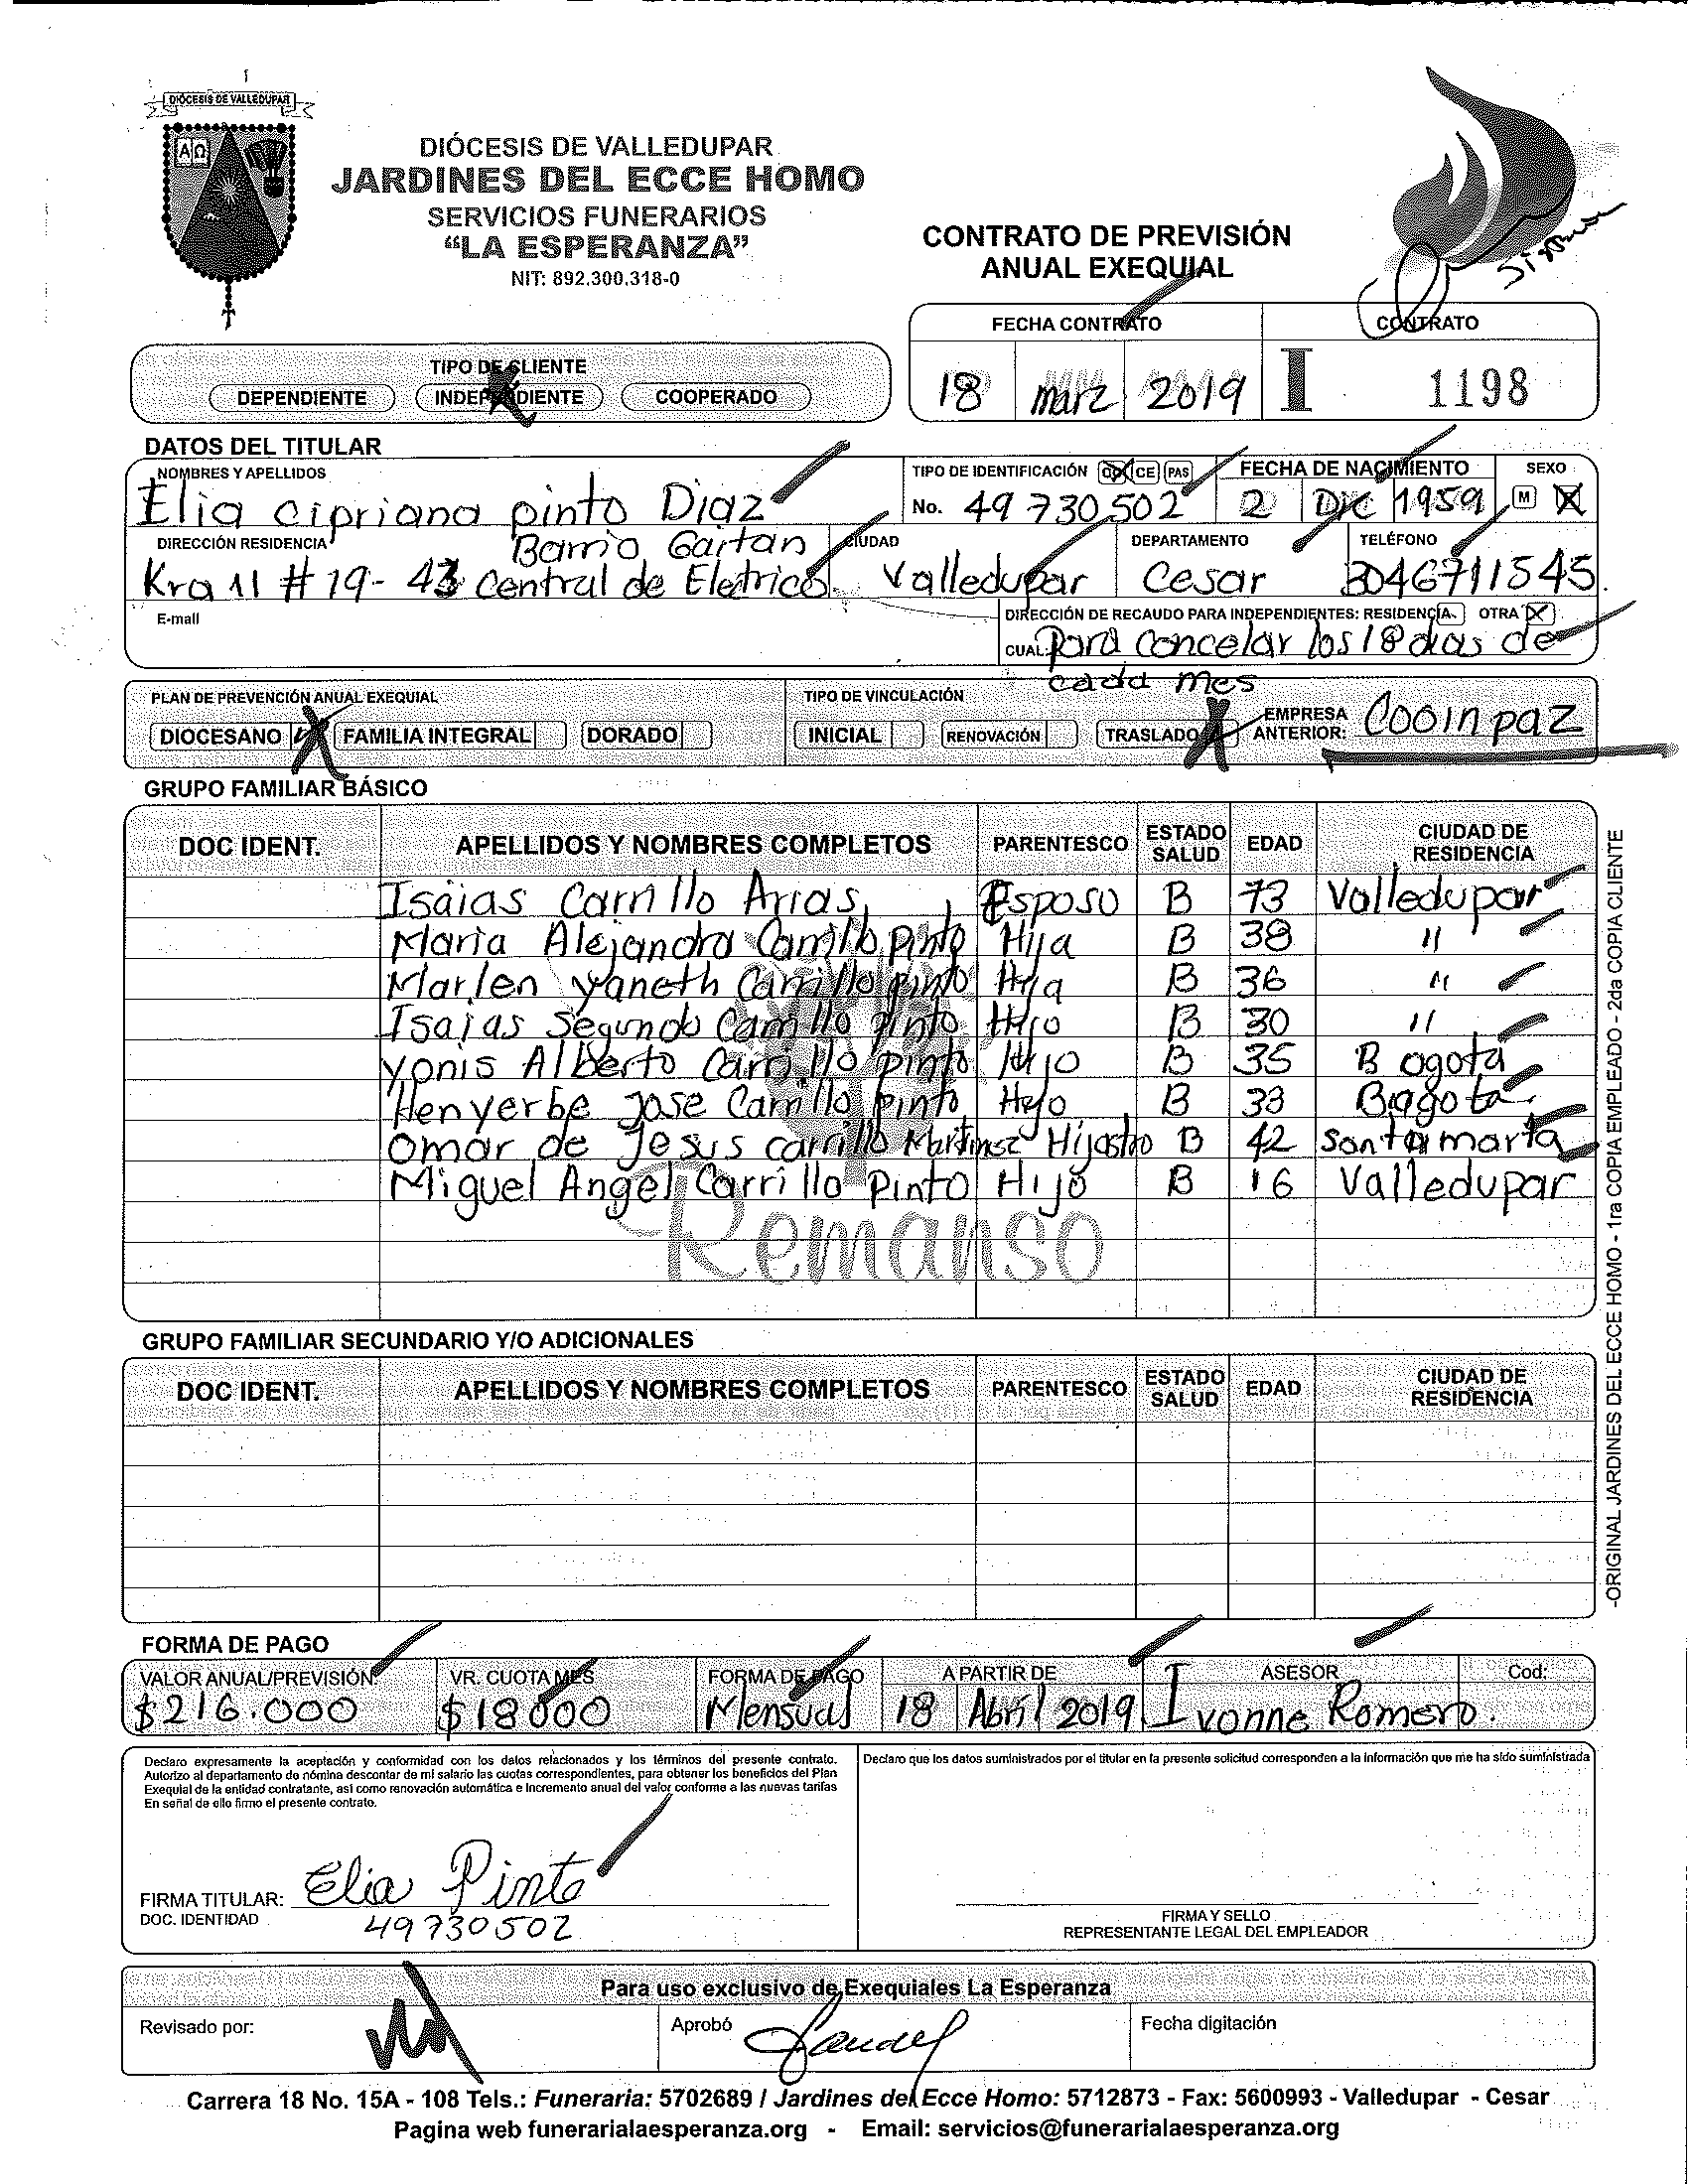 DIÓCESIS DE VALLEDUPAR
AΩ
DIÓCESIS DE VALLEDUPAR
JARDINES DEL ECCE HOMO
SERVICIOS FUNERARIOS
“LA ESPERANZA”
NIT: 892.300.318-0
CONTRATO DE PREVISIÓN
ANUAL EXEQUIAL
FECHA CONTRATO CONTRATO
18 marz 2019 I 1198
TIPO DE CLIENTE
DEPENDIENTE INDEPENDIENTE COOPERADO
DATOS DEL TITULAR
NOMBRES Y APELLIDOS TIPO DE IDENTIFICACIÓN CE PAS FECHA DE NACIMIENTO SEXO
Elia cipriana pinto Diaz No. 49 730 502 2 Dic 1959 M
DIRECCIÓN RESIDENCIA Barrio Gaitan CIUDAD DEPARTAMENTO TELÉFONO
Kra 11 # 19- 43 Central de Eletrico Valledupar Cesar 3046711545
E-mail DIRECCIÓN DE RECAUDO PARA INDEPENDIENTES: RESIDENCIA OTRA X
CUAL: Para concelar los 18 dias de
cada mes
PLAN DE PREVENCIÓN ANUAL EXEQUIAL TIPO DE VINCULACIÓN
DIOCESANO X FAMILIA INTEGRAL DORADO INICIAL RENOVACIÓN TRASLADO X EMPRESA ANTERIOR: Cooinpaz
GRUPO FAMILIAR BÁSICO
DOC IDENT. APELLIDOS Y NOMBRES COMPLETOS PARENTESCO ESTADO SALUD EDAD CIUDAD DE RESIDENCIA
Isaias Carrillo Arias Esposo B 73 Valledupar
Maria Alejandra Carrillo pinto Hija B 38 "
Marlen yaneth Carrillo pinto Hija B 36 "
Isaias Segundo Carrillo pinto Hijo B 30 "
yonis Alberto Carrillo pinto Hijo B 35 Bogota
Henyerbe Jose Carrillo pinto Hijo B 33 Bogota
Omar de Jesus carrillo Martinez Hijastro B 42 Santa marta
Miguel Angel Carrillo Pinto Hijo B 16 Valledupar
Remanso
GRUPO FAMILIAR SECUNDARIO Y/O ADICIONALES
DOC IDENT. APELLIDOS Y NOMBRES COMPLETOS PARENTESCO ESTADO SALUD EDAD CIUDAD DE RESIDENCIA
-ORIGINAL JARDINES DEL ECCE HOMO - 1ra COPIA EMPLEADO - 2da COPIA CLIENTE
FORMA DE PAGO
VALOR ANUAL/PREVISIÓN VR. CUOTA MES FORMA DE PAGO A PARTIR DE ASESOR Cod:
$216.000 $18000 Mensual 18 Abril 2019 Ivonne Romero.
Declaro expresamente la aceptación y conformidad con los datos relacionados y los términos del presente contrato.
Autorizo al departamento de nómina descontar de mi salario las cuotas correspondientes, para obtener los beneficios del Plan
Exequial de la entidad contratante, así como renovación automática e incremento anual del valor conforme a las nuevas tarifas
En señal de ello firmo el presente contrato.
Declaro que los datos suministrados por el titular en la presente solicitud corresponden a la información que me ha sido suministrada
FIRMA TITULAR: Elia Pinto
DOC. IDENTIDAD 49730502
FIRMA Y SELLO
REPRESENTANTE LEGAL DEL EMPLEADOR
Para uso exclusivo de Exequiales La Esperanza
Revisado por: Aprobó Fecha digitación
Carrera 18 No. 15A - 108 Tels.: Funeraria: 5702689 / Jardines del Ecce Homo: 5712873 - Fax: 5600993 - Valledupar - Cesar
Pagina web funerarialaesperanza.org - Email: servicios@funerarialaesperanza.org